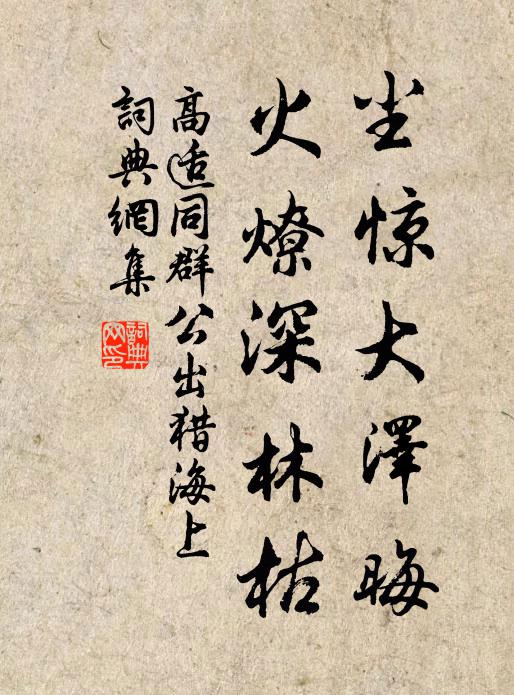 尘惊大澤晦
火燎深林枯
高适同群公出猎海上
詞典網集
詞典网印